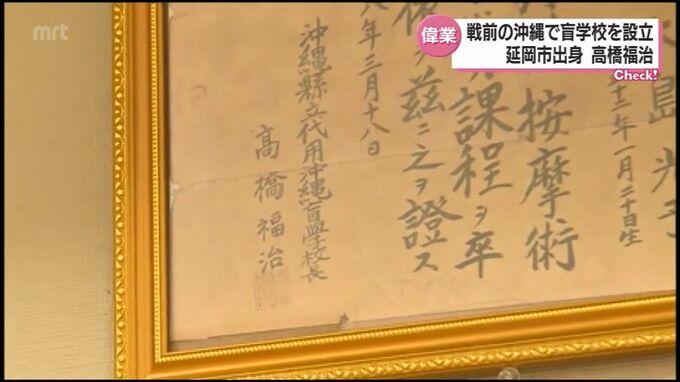 mrt
偉業
戦前の沖縄で盲学校を設立
延岡市出身 高橋福治
Check!
島光子
十三年一月二十日生
按摩術
課程ヲ卒
茲ニ之ヲ證ス
八年三月十八日
沖縄縣立代用沖縄盲學校長
高橋福治